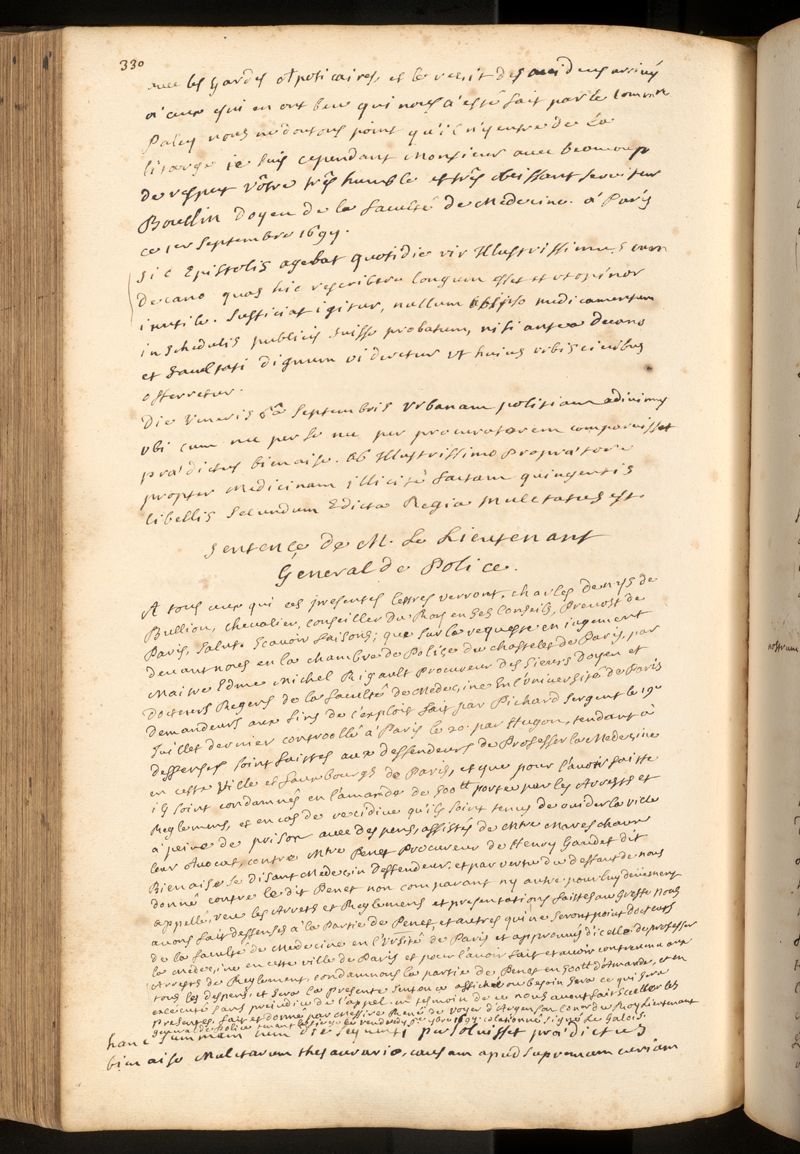 330
avec les Gardes apoticaires, et le recit des accidens arrivés
a ceux qui en ont beu qui nous a esté fait par le commre
Paley nous ne doutons point qu'il n'y entre de la
litarge ie suis cependant Monsieur avec beaucoup
de respect vôtre tres humble et tres obeissant serviteur
Boudin Doyen de la faculté de Medecine. à Paris
ce 1er Septembre 1697.
Sic Epistolis agebat quotidie vir Illustrissimus cum
decano quas hic rescribere longum esset et ut opinor
inutile. Sufficiat igitur, nullum ipso medicamentum
in schedulis publicis fuisse probatum, nisi antea decano
et facultati dignum videretur ut huius urbis civibus
offerretur.
Die Veneris 6a Septembris urbanam politiam adivimus
ubi cum nec per se nec per procuratorem comparuisset
prædictus bienaise. Ab Illustrissimo Proprætore
propter Medicinam illicitè factam quingentis
libellis secundum Edicta Regia mulctatus est
Sentence de M. Le Lieutenant
General de Police.
A tous ceux qui ces presentes lettres verront, charles denys de
Bullion, chevalier, conseiller du Roy en ses conseils, Prevost de
Paris, salut. Scavoir faisons; que sur la requeste en jugement
devant nous en la chambre de Police du chastelet de Paris, par
Maitre Edme Michel Rigault Procureur des Sieurs Doyen et
docteurs Regens de la faculté de Medecine en l'université de Paris
demandeurs aux fins de l'exploit fait par Pichard sergent le 19e
Juillet dernier controollé à Paris le 20. par Hugon, tendant à
deffenses soint faittes aux deffendeurs de Professer la Medecine
en cette ville et fauxbourgs de Paris, et que pour l'avoir faitte
ils soint condamnés en l'amande de 500tt portée par les Arrests et
Reglemens, et en cas de recidive qu'ils soint tenus de vuider la ville
à peine de prison avec despens, assistés de Mtre Mareschaux
leur Avocat, contre Mtre Penet Procureur de Henry Gaudet dit
Bienaise se disant Medecin deffendeur, et par vertu du deffaut de nous
donné contre le dit Penet non comparant ny autre pour luy deüement
appellé, veu les Arrets et Reglemens et presentations faittes au Greffe nous
avons fait deffenses à la Partie de Penet, et autres qui ne seront point docteurs
de la faculté de Medecine en l'Vrsité de Paris et approuvés d'icelle de professer
la medecine en cette ville de Paris et pour l'avoir fait et avoir contrevenu aux
Arrests de Reglement, condamnons la partie de Penet en 500tt d'Amande, et en
tous les despens, et sera la presente sentence affichée ou besoin sera ce qui sera
executé sans prejudice de l'appel. en tesmoin de ce nous avons fait sceller les
presentes. fait et donné par Messire René de Voyer d'Argenson Coner du Roy Lieutenant
general de Police tenant le siege le vendredy 6e 7bre 1697. colationné signé Le Galois.
hanc summam cum die sequenti persolvisset prædictus
bienaise Mulctarum thesaurario, causam apud supremam curiam
nostrum